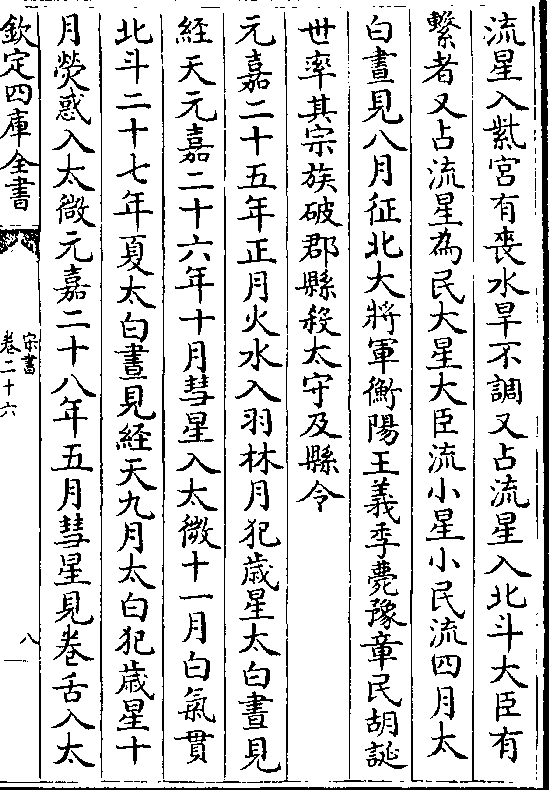 流星入紫宮有喪水旱不調又占流星入北斗大臣有
繫者又占流星為民大星大臣流小星小民流四月太
白晝見八月征北大將軍衡陽王義季薨豫章民胡誕
世率其宗族破郡縣殺太守及縣令
元嘉二十五年正月火水入羽林月犯歲星太白晝見
經天元嘉二十六年十月彗星入太微十一月白氣貫
北斗二十七年夏太白晝見經天九月太白犯歲星十
月熒惑入太微元嘉二十八年五月彗星見卷舌入太
欽定四庫全書
宋書
卷二十六
八